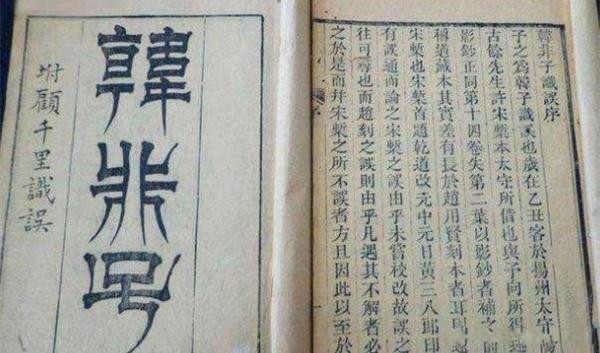 韓非子
坿顧千里識誤
韓非子識誤序
予之爲韓子識誤也歲在乙丑客於揚州太守陽
古餘先生許宋槧本太守所借也與予向所得述
影鈔正同第十四卷失第二葉以影鈔者補之
稱道藏本其實差有長於趙用賢刻本者耳
宋槧也宋槧首題乾道改元中元日黃三八郎印
有誤通而論之宋槧之誤由乎未嘗校改故誤之
往可尋也而趙刻之誤則由乎凡遇其不解者必
之於是而并宋槧之所不誤者方且因此以至於
序